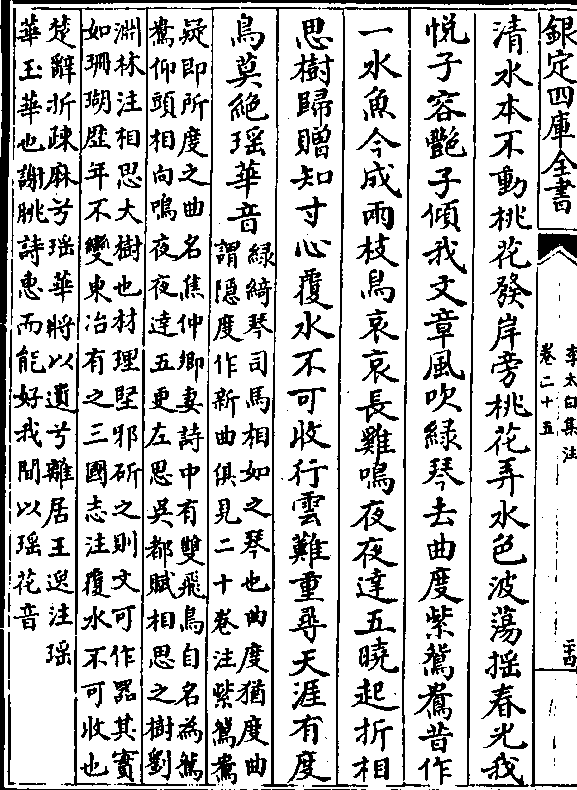 欽定四庫全書
李太白集注
卷二十五
清水本不動桃花發岸旁桃花弄水色波蕩揺春光我
悅子容艷子傾我文章風吹緑琴去曲度紫鴛鴦昔作
一水魚今成兩枝鳥哀哀長雞鳴夜夜達五曉起折相
思樹歸贈知寸心覆水不可收行雲難重尋天涯有度
鳥莫絶瑶華音
緑綺琴司馬相如之琴也曲度猶度曲
謂隠度作新曲俱見二十卷注紫鴛鴦
疑即所度之曲名焦仲卿妻詩中有雙飛鳥自名為鴛
鴦仰頭相向鳴夜夜達五更左思吳都賦相思之樹劉
淵林注相思大樹也材理堅邪斫之則文可作器其實
如珊瑚歴年不變東冶有之三國志注覆水不可收也
楚辭折疎麻兮瑶華將以遺兮離居王逸注瑶
華玉華也謝脁詩惠而能好我問以瑶花音